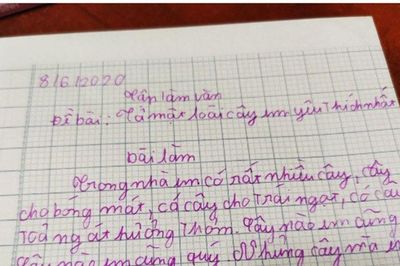 8/6/2020
Tập làm văn
Đề bài: Tả một loài cây em yêu thích nhất
Bài làm
Trong nhà em có rất nhiều cây, cây
cho bóng mát, có cây cho trái ngọt, có cây
toả ngát hương thơm. Cây nào em cũng
cũng quý. Nhưng cây mà em